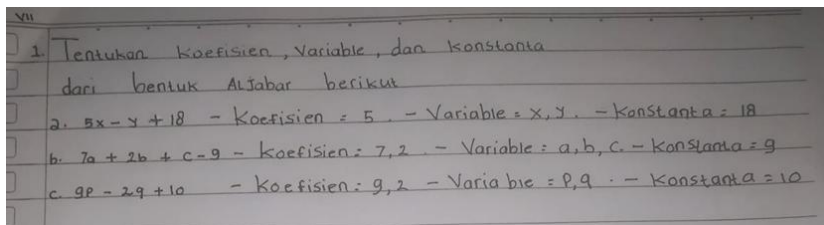 VII
1. Tentukan Koefisien, Variable, dan Konstanta
dari bentuk ALJabar berikut
a. 5x - y + 18 - Koefisien = 5 . - Variable = x, y. - Konstanta = 18
b. 7a + 2b + c - 9 - Koefisien = 7, 2 . - Variable = a, b, c. - Konstanta = 9
c. 9p - 2q + 10 - Koefisien = 9, 2 - Variable = P, q . - Konstanta = 10